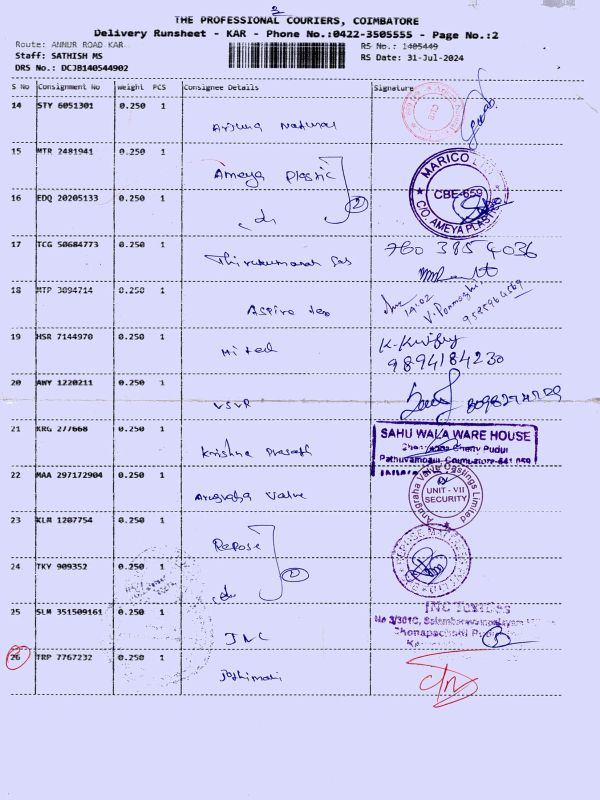 2
THE PROFESSIONAL COURIERS, COIMBATORE
Delivery Runsheet - KAR - Phone No.:0422-3505555 - Page No.:2
Route: ANNUR ROAD KAR
RS No.: 1405449
Staff: SATHISH MS
RS Date: 31-Jul-2024
DRS No.: DCJB140544902
S No Consignment No weight PCS Consignee Details Signature
14 STY 6051301 0.250 1
Arjuna Natural
15 MTR 2481941 0.250 1
Ameya Plastic
MARICO
CBE-659
C/O. AMEYA PLASTIC
16 EDQ 20205133 0.250 1
do 2
17 TCG 50684773 0.250 1
760 385 4036
Thirukumaran Gas
18 MTP 3094714 0.250 1
Aspire
14:02
19 HSR 7144970 0.250 1
Hi tech
9894184230
20 AWY 1220211 0.250 1
VSVR
21 KRG 277668 0.250 1
SAHU WALA WARE HOUSE
Krishna Prasath
22 MAA 297172904 0.250 1
Anugraha Valve
Anugraha Valve Castings Limited
UNIT - VII
SECURITY
23 KLM 1207754 0.250 1
Repose
24 TKY 909352 0.250 1
do 2
25 SLM 351509161 0.250 1
JNC
26 TRP 7767232 0.250 1